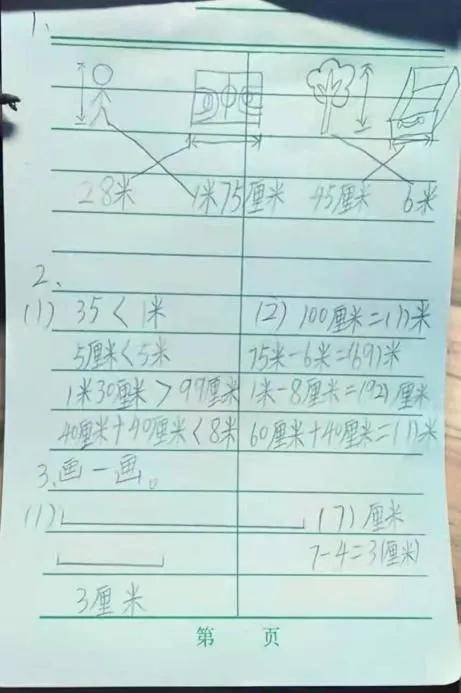 1、
28米 1米75厘米 45厘米 6米
2、
(1) 35 < 1米 (2) 100厘米=(1)米
5厘米<5米 75米-6米=(69)米
1米30厘米 > 99厘米 1米-8厘米=(92)厘米
40厘米+40厘米<8米 60厘米+40厘米=(1)米
3、画一画。
(1) (7)厘米
7-4=3(厘米)
3厘米
第 页